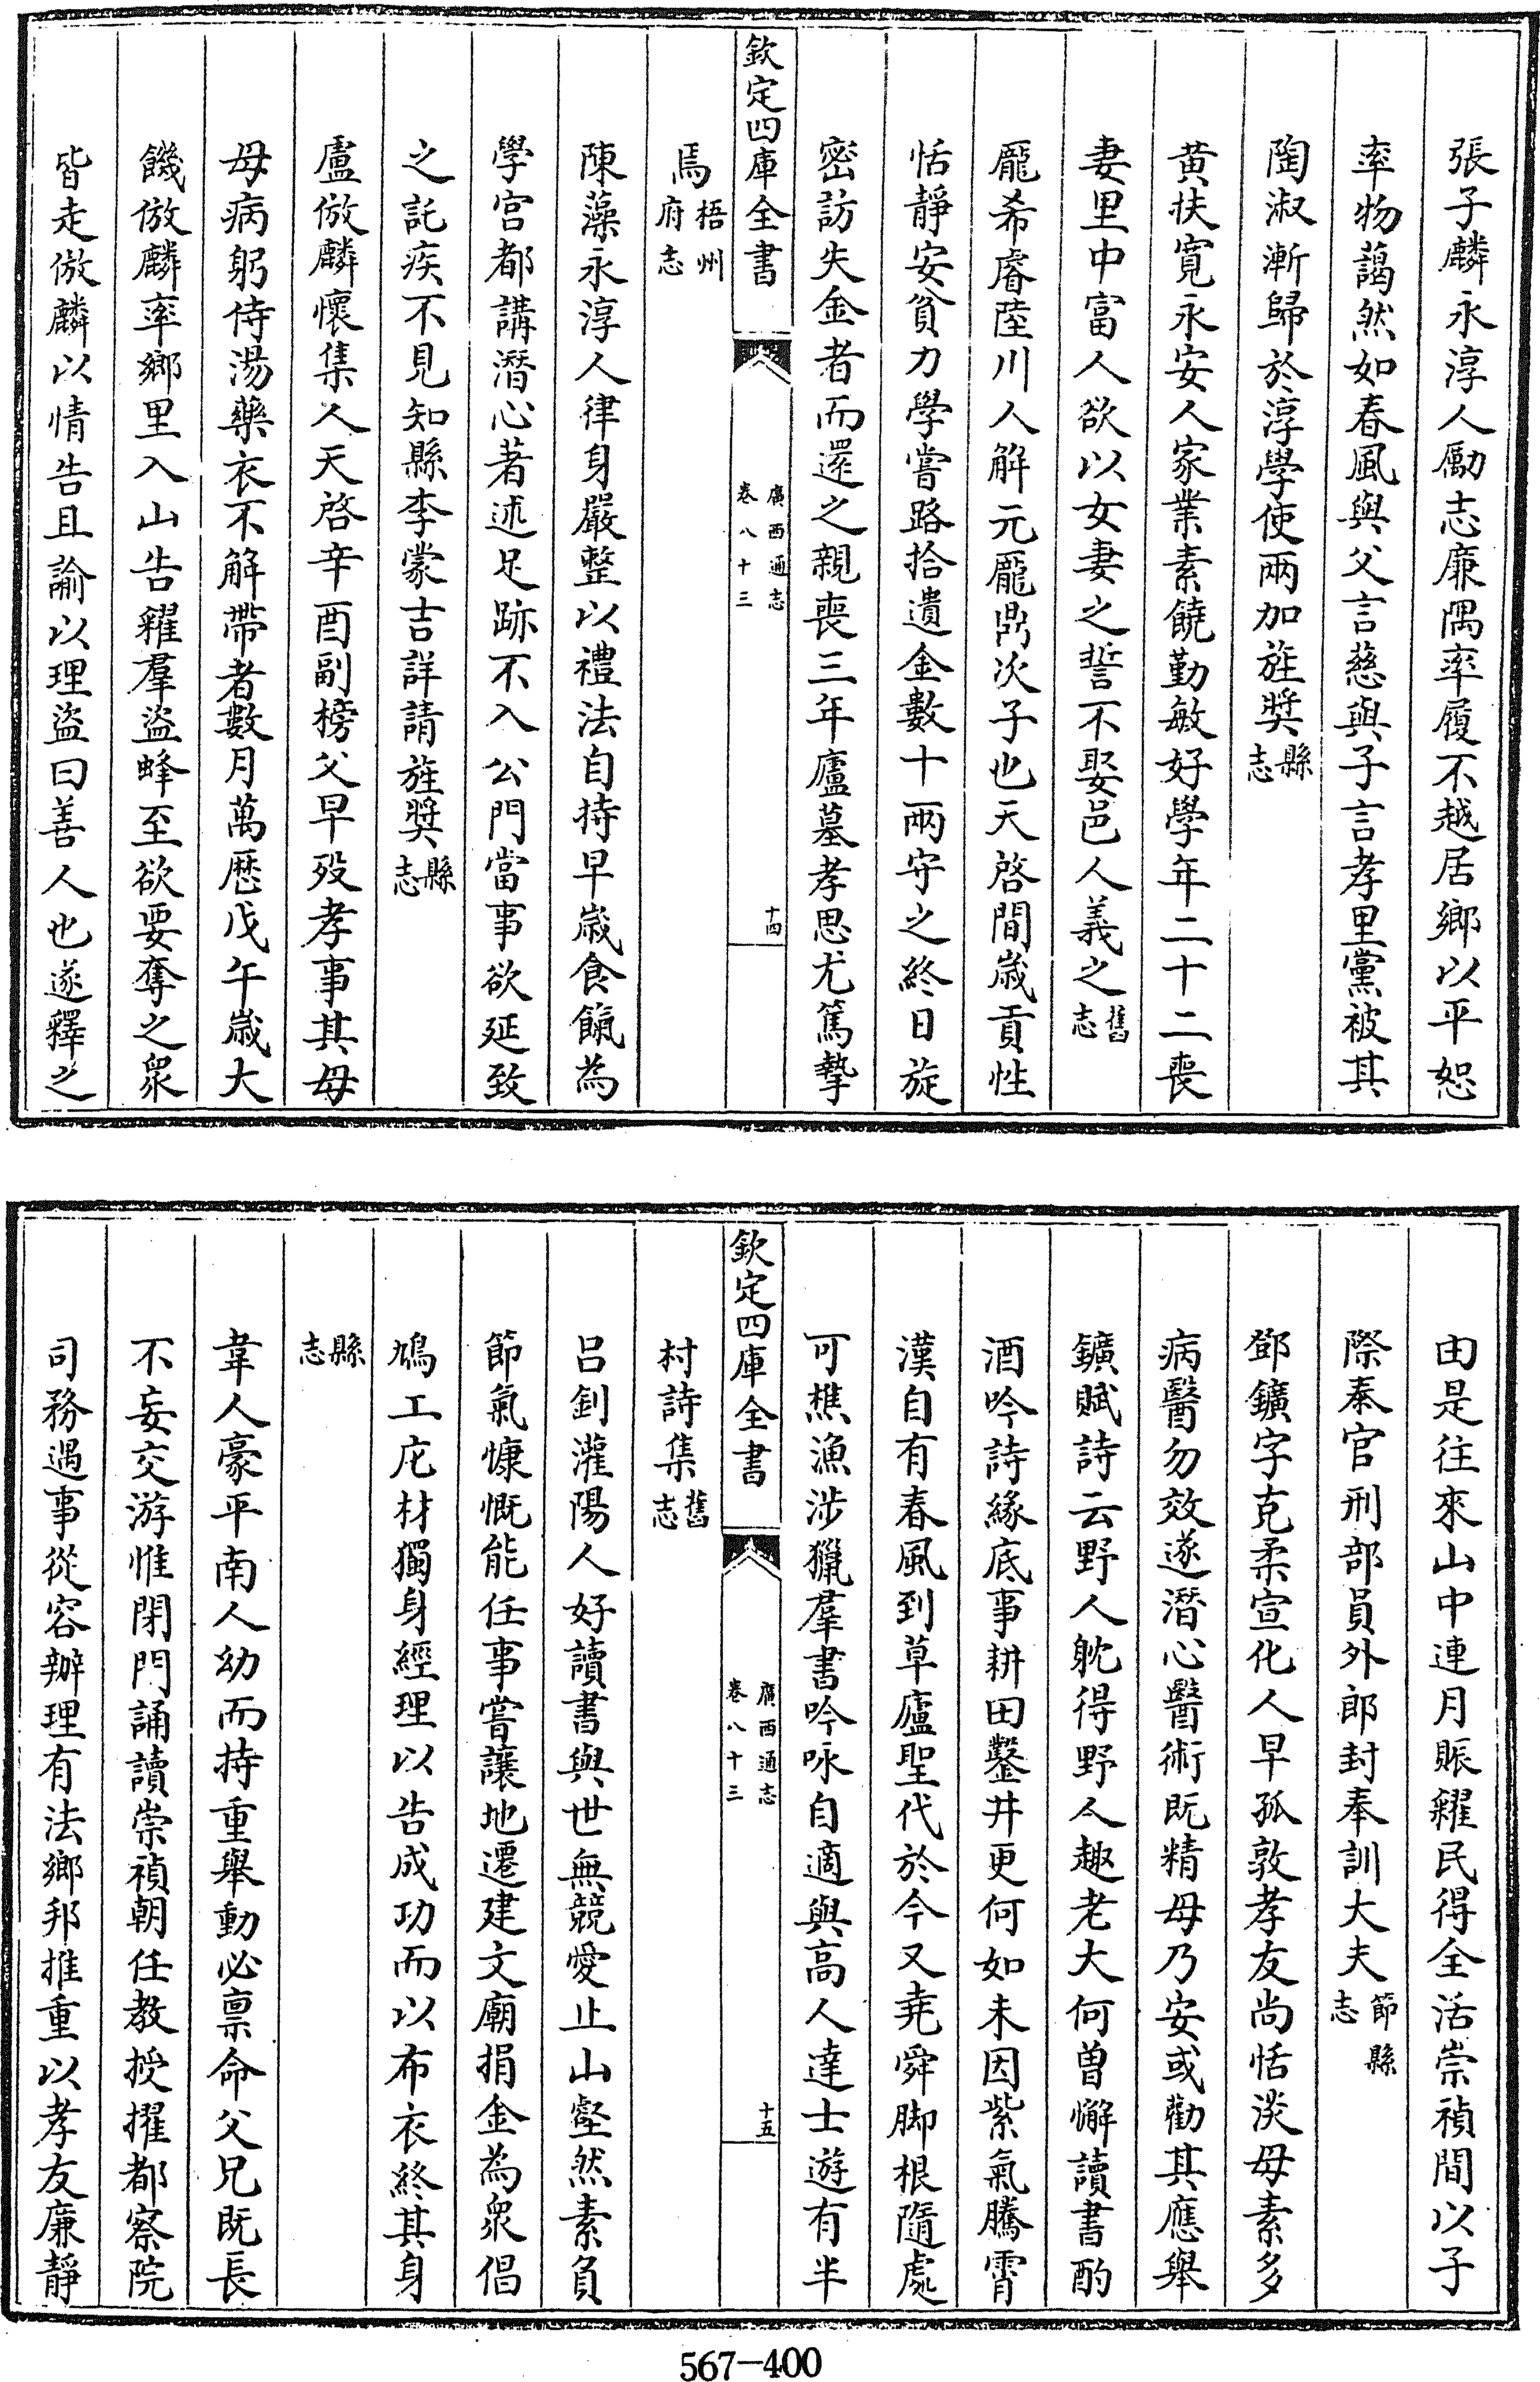 張子麟永淳人勵志廉隅率履不越居鄉以平恕
率物藹然如春風與父言慈與子言孝里黨被其
陶淑漸歸於淳學使兩加旌奬縣志
黄扶寛永安人家業素饒勤敏好學年二十二喪
妻里中富人欲以女妻之誓不娶邑人義之舊志
龎希睿陸川人解元龎鼎次子也天啓間歳貢性
恬靜安貧力學嘗路拾遺金數十兩守之終日旋
密訪失金者而還之親喪三年廬墓孝思尤篤摯
欽定四庫全書
廣西通志
卷八十三
十四
焉梧州府志
陳藻永淳人律身嚴整以禮法自持早歳食餼為
學宮都講潛心著述足跡不入公門當事欲延致
之託疾不見知縣李蒙吉詳請旌奬縣志
盧倣麟懷集人天啓辛酉副榜父早歿孝事其母
母病躬侍湯藥衣不解帶者數月萬厯戊午歳大
饑倣麟率鄉里入山告糴羣盗蜂至欲要奪之衆
皆走倣麟以情告且諭以理盗曰善人也遂釋之
由是往來山中連月賑糴民得全活崇禎間以子
際泰官刑部員外郎封奉訓大夫節縣志
鄧鑛字克柔宣化人早孤敦孝友尚恬淡母素多
病醫勿效遂潛心醫術既精母乃安或勸其應舉
鑛賦詩云野人躭得野人趣老大何曽懈讀書酌
酒吟詩緣底事耕田鑿井更何如未因紫氣騰霄
漢自有春風到草廬聖代於今又堯舜脚根隨處
可樵漁涉獵羣書吟咏自適與高人達士遊有半
欽定四庫全書
廣西通志
卷八十三
十五
村詩集舊志
呂釗灌陽人好讀書與世無競愛止山壑然素負
節氣慷慨能任事嘗讓地遷建文廟捐金為衆倡
鳩工庀材獨身經理以告成功而以布衣終其身
縣志
韋人豪平南人幼而持重舉動必禀命父兄既長
不妄交游惟閉門誦讀崇禎朝任教授擢都察院
司務遇事從容辦理有法鄉邦推重以孝友廉靜
567-400